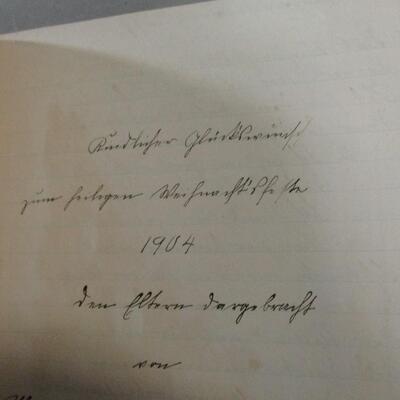 Kindlicher Glückwunsch
zum heiligen Weihnachtsfeste
1904
den Eltern dargebracht
von